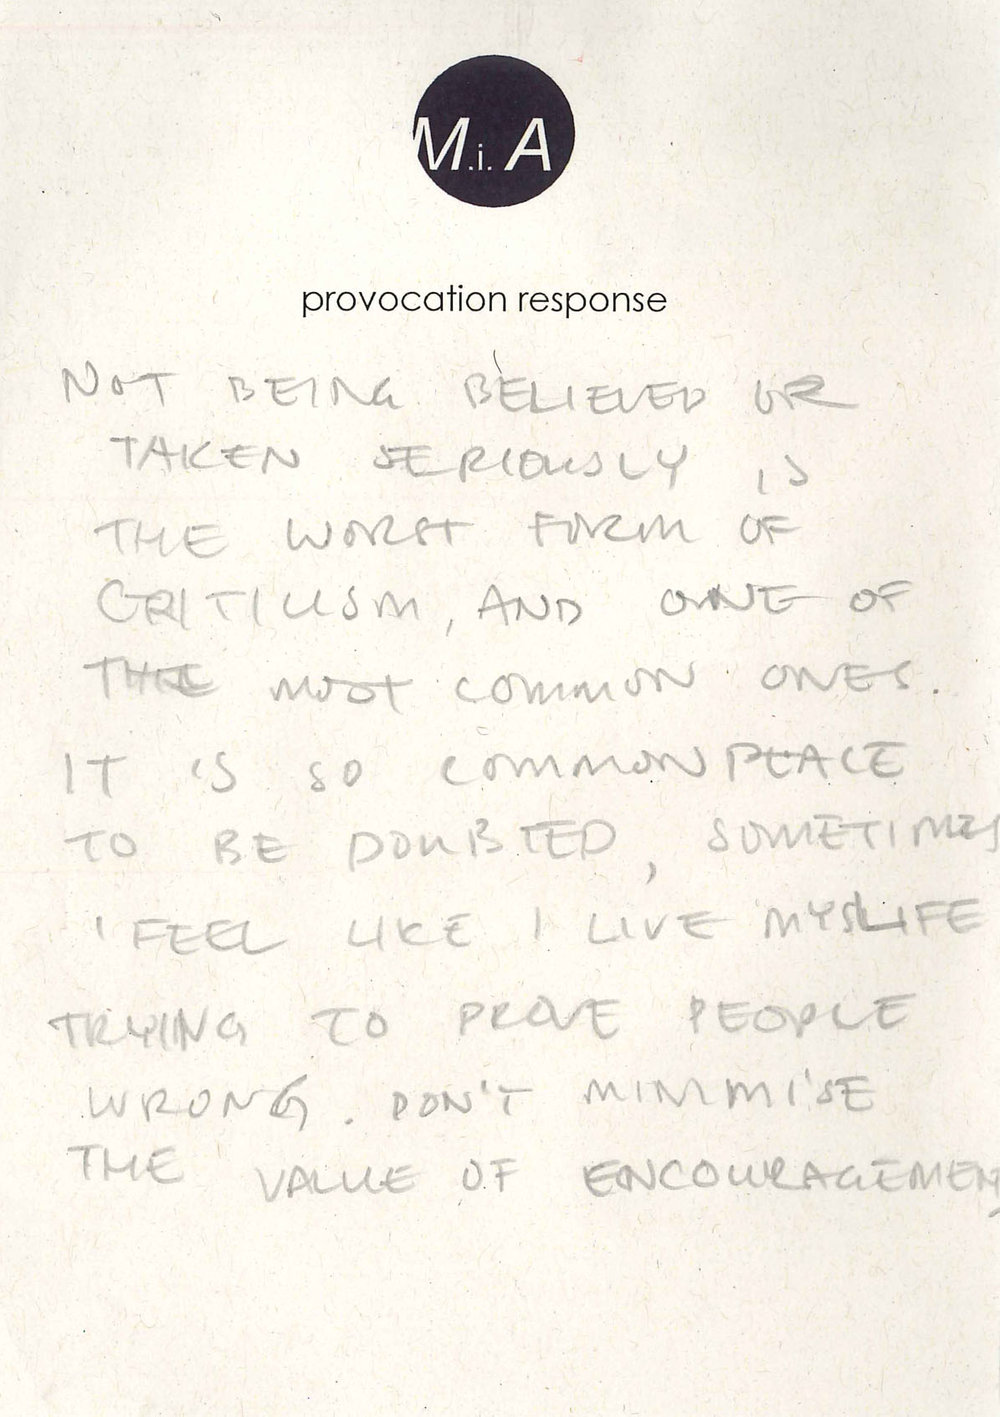 M.i.A
provocation response
NOT BEING BELIEVED OR
TAKEN SERIOUSLY IS
THE WORST FORM OF
CRITICISM, AND ONE OF
THE MOST COMMON ONES.
IT IS SO COMMONPLACE
TO BE DOUBTED, SOMETIMES
I FEEL LIKE I LIVE MY LIFE
TRYING TO PROVE PEOPLE
WRONG. DON'T MINIMISE
THE VALUE OF ENCOURAGEMENT